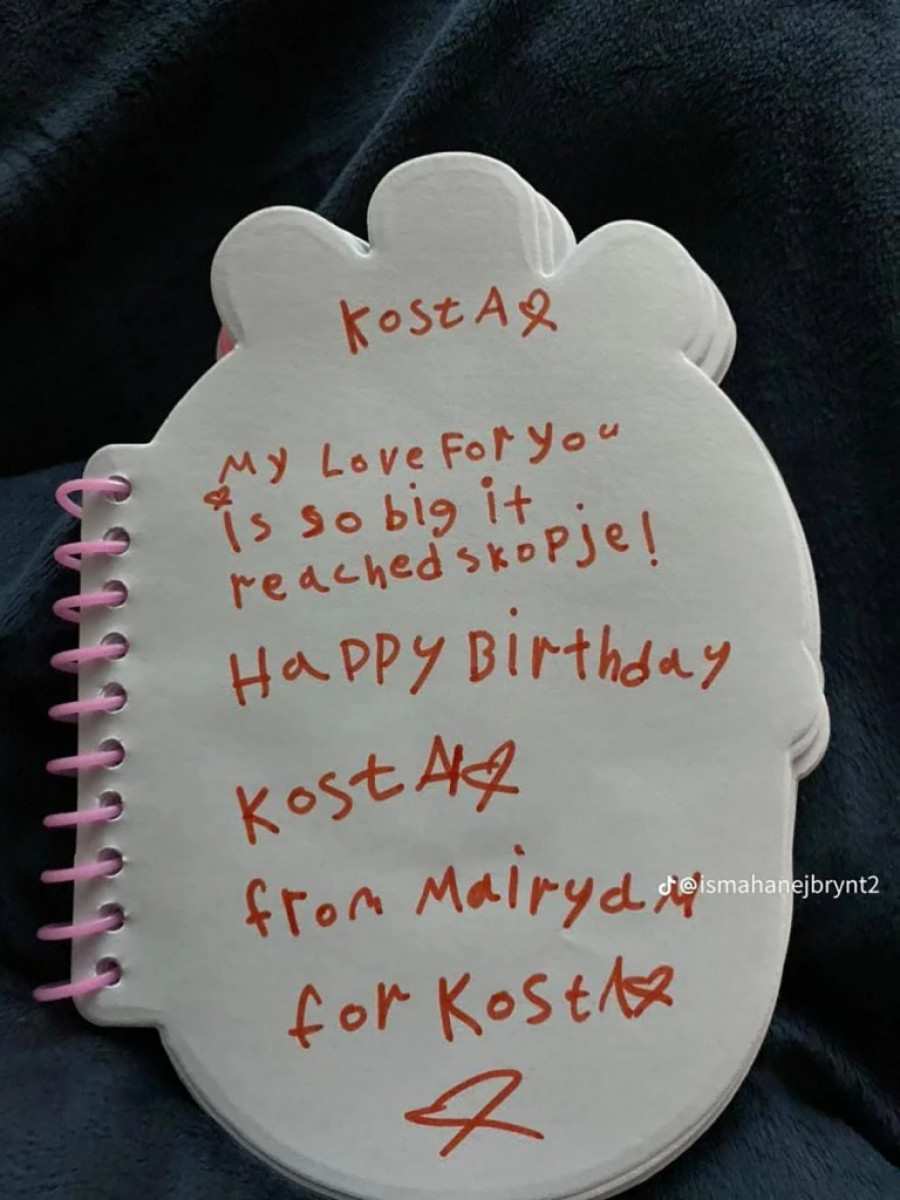 KostA
My Love For you
is so big it
reached skopje!
Happy Birthday
KostA
from Mairyd
@ismahanejbrynt2
for KostA